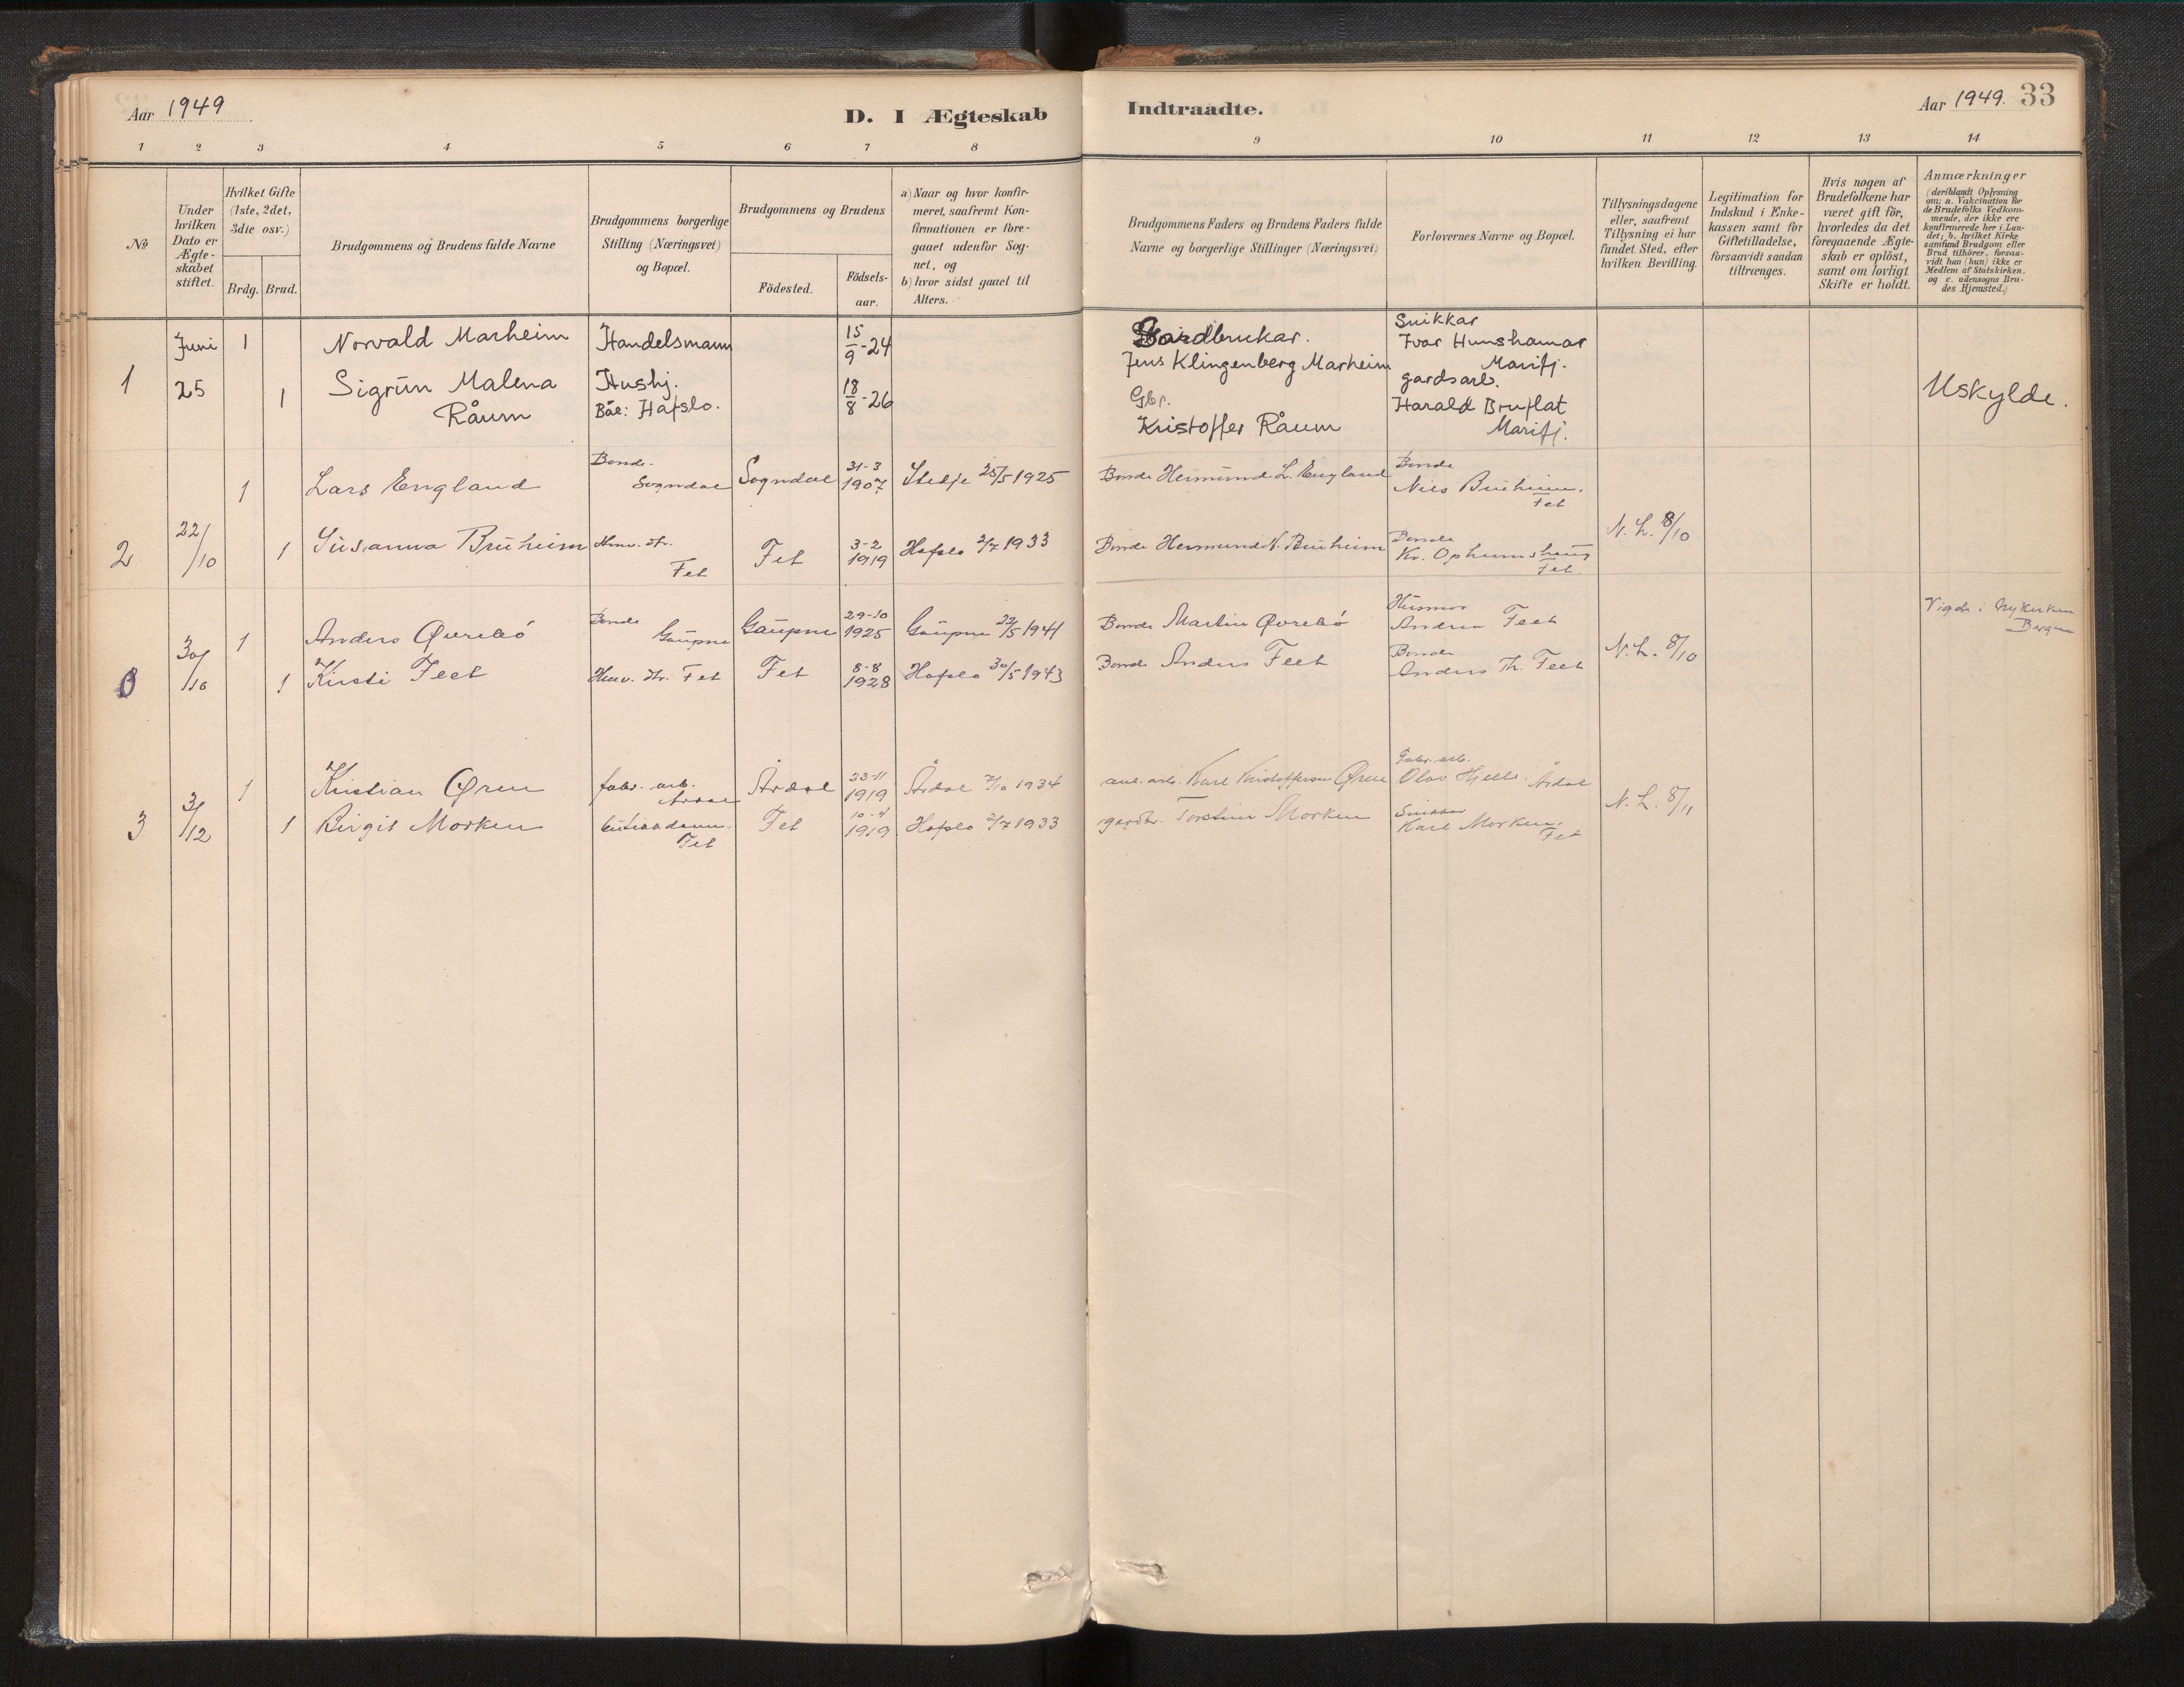 Aar 1949
D. I Ægteskab
Indtraadte.
Aar 1949. 33
1 2 3 4 5 6 7 8
9 10 11 12 13 14
No
Under hvilken Dato er Ægte-skabet stiftet.
Hvilket Gifte (1ste, 2det, 3die osv.)
Brdg. Brud.
Brudgommens og Brudens fulde Navne
Brudgommens borgerlige Stilling (Næringsvei) og Bopæl.
Brudgommens og Brudens
Födested.
Födsels-aar.
a) Naar og hvor konfir-meret, saafremt Kon-firmationen er fore-gaaet udenfor Sog-net, og
b) hvor sidst gaaet til Alters.
Brudgommens Faders og Brudens Faders fulde Navne og borgerlige Stillinger (Næringsvei)
Forlovernes Navne og Bopæl.
Tillysningsdagene eller, saafremt Tillysning ei har fundet Sted, efter hvilken Bevilling.
Legitimation for Indskud i Enke-kassen samt for Giftetilladelse, forsaavidt saadan tiltrænges.
Hvis nogen af Brudefolkene har været gift för, hvorledes da det foregaaende Ægte-skab er oplöst, samt om lovligt Skifte er holdt.
Anmærkninger (deriblandt Oplysning om: a. Vakcination for de Brudefolks Vedkom-mende, der ikke ere konfirmerede her i Lan-det; b. hvilket Kirke-samfund Brudgom eller Brud tilhörer, forsaa-vidt han (hun) ikke er Medlem af Statskirken, og c. udensogns Bru-des Hjemsted.)
1
Juni 25
1 Norvald Marheim
Handelsmann
15/9-24
Gardbrukar.
Jens Klingenberg Marheim
Snikkar
Ivar Hunshamar
Marifj.
1 Sigrun Malena
Råum
Hushj.
Båe: Hafslo.
18/8-26
Gbr.
Kristoffer Råum
gardsarb.
Harald Bruflat
Marifj.
Uskylde.
2
22/10
1 Lars England
Bonde.
Sogndal
Sogndal
31-3
1907
Stedje 25/5 1925
Bonde Hermund L. England
Bonde
Nils Bruheim.
Fet
1 Susanna Bruheim
Fet
Fet
3-2
1919
Hafslo 2/7 1933
Bonde Hermund N. Bruheim
Bonde
Kr. Ophumshaug
Fet
N. L. 8/10
0
30/10
1 Anders Øvrebö
Bonde
Gaupne
Gaupne
29-10
1925
Gaupne 22/5 1941
Bonde Martin Øvrebö
Husmor
Andrea Feet
Vigde i Nykirken
Bergen
1 Kirsti Feet
Fet
Fet
8-8
1928
Hafslo 30/5 1943
Bonde Anders Feet
Bonde
Anders Th. Feet
N. L. 8/10
3
3/12
1 Kristian Øren
fabr. arb.
Årdal
Årdal
23-11
1919
Årdal 7/10 1934
anl. arb. Karl Kristofferson Øren
Fabr. arb.
Olav Hjelle. Årdal
1 Birgit Morken
Fet
Fet
10-4
1919
Hafslo 2/7 1933
gardbr. Torstein Morken
Snikkar
Karl Morken.
Fet
N. L. 8/11